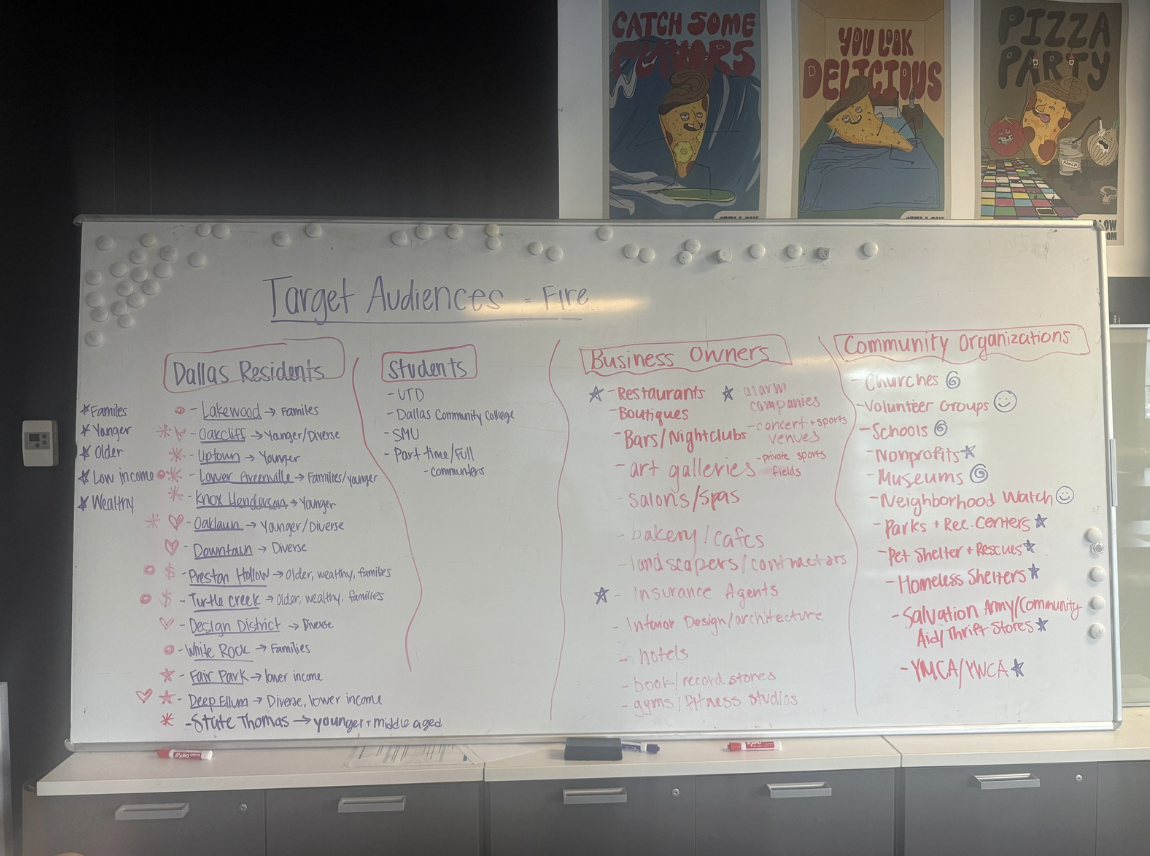 CATCH SOME
FLAVORS
YOU LOOK
DELICIOUS
PIZZA
PARTY
TARGET AUDIENCES = FIRE
Dallas Residents
*Familes
*Younger
*Older
*Low income
*Wealthy
- Lakewood → Familes
- Oakcliff → Younger/Diverse
- Uptown → Younger
- Lower Greenville → Families/younger
- Knox Henderson → Younger
- Oaklawn → Younger/Diverse
- Downtown → Diverse
- Preston Hollow → Older, wealthy, families
$
- Turtle Creek → Older, wealthy, families
$
- Design District → Diverse
- White Rock → Families
- Fair Park → lower income
- Deep Ellum → Diverse, lower income
- State Thomas → younger + middle aged
Students
- UTD
- Dallas Community College
- SMU
- Part time/Full
- commuters
Business Owners
- Restaurants
- Boutiques
- Bars/Nightclubs
- art galleries
- salons/spas
- bakery/cafes
- landscapers/contractors
- Insurance Agents
- Interior Design/architecture
- hotels
- book/record stores
- gyms/fitness studios
alarm
companies
- concert + sports
venues
- private sports
fields
Community Organizations
- Churches
- Volunteer Groups
- Schools
- Nonprofits
- Museums
- Neighborhood Watch
- Parks + Rec. Centers
- Pet Shelter + Rescues
- Homeless Shelters
- Salvation Army/Community
Aid/Thrift Stores
- YMCA/YWCA
EXPO